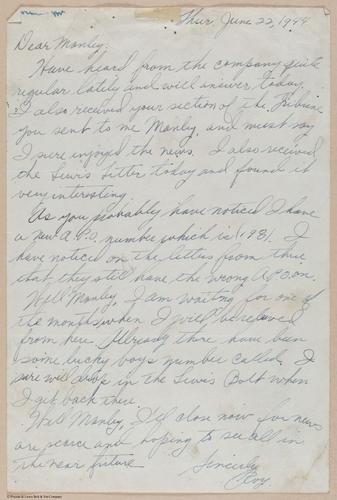 Thur, June 22, 1944
Dear Manley:
Have heard from the company quite
regular lately and will answer today.
I also received your section of the Tribune
you sent to me Manley, and must say
I sure injoyed the news. I also received
the Lewis Letter today and found it
very interesting
As you probably have noticed I have
a new A.P.O. number which is 1931. I
have noticed on the letters from there
that they still have the wrong A.P.O. on.
Well Manley, I am waiting for one of
the months when I will be relieved
from here. Already there have been
some lucky boys number called. I
sure will drop in the Lewis Bolt when
I get back there
Well Manley, I'll close now for news
are scarce and hoping to see all in
the near future
Sincerly
Roy.